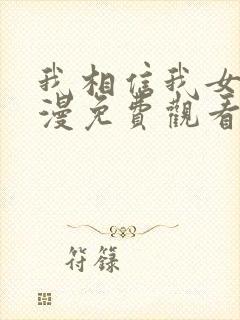 我相信我女
漫免費觀看
符籙